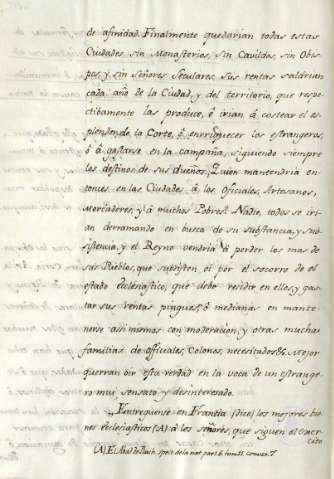 de afinidad. Finalmente quedarian todas estas
Ciudades sin Monasterios, sin Cavildos, sin Obis-
pos, y sin señores Seculares, sus rentas saldrian
cada año de la Ciudad, y del territorio, que respe-
ctibamente las produce, ó irian á costear el es-
plendor de la Corte, ó enrriquecer los estrangeros,
ó á gastarse en la campaña, siguiendo siempre
los destinos de sus dueños. Quien mantendria en-
tonces en las Ciudades á los Oficiales, Artesanos,
Mercaderes, y á muchos Pobres? Nadie, todos se iri-
an derramando en busca de su substancia, y sub-
sistencia, y el Reyno vendria á perder los mas de
sus Pueblos, que subsisten oi por el socorro de el
estado eclesiastico, que debe residir en ellos, y gas-
tar sus rentas pingues, ó medianas en mante-
nerse asi mismos con moderacion, y otras muchas
familias de officiales, Colonos, necesitados &. Mejor
querran oir esta verdad en la voca de un estrange-
ro mui sensato y desinteresado.
Entreguense en Francia (dice) los mejores bie-
nes eclesiasticos (A) á los señores, que siguen el exer-
cito
(A) El Abad de Pluch. spect. de la nat. part. 6. tom. 11. convers. 7